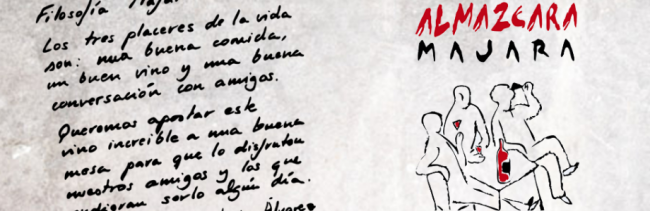 Filosofía
Los tres placeres de la vida
son: una buena comida,
un buen vino y una buena
conversación con amigos.
Queremos aportar este
vino increíble a una buena
mesa para que lo disfruten
nuestros amigos y los que
pudieran serlo algún día.
Álvarez
ALMAZCARA
MAJARA